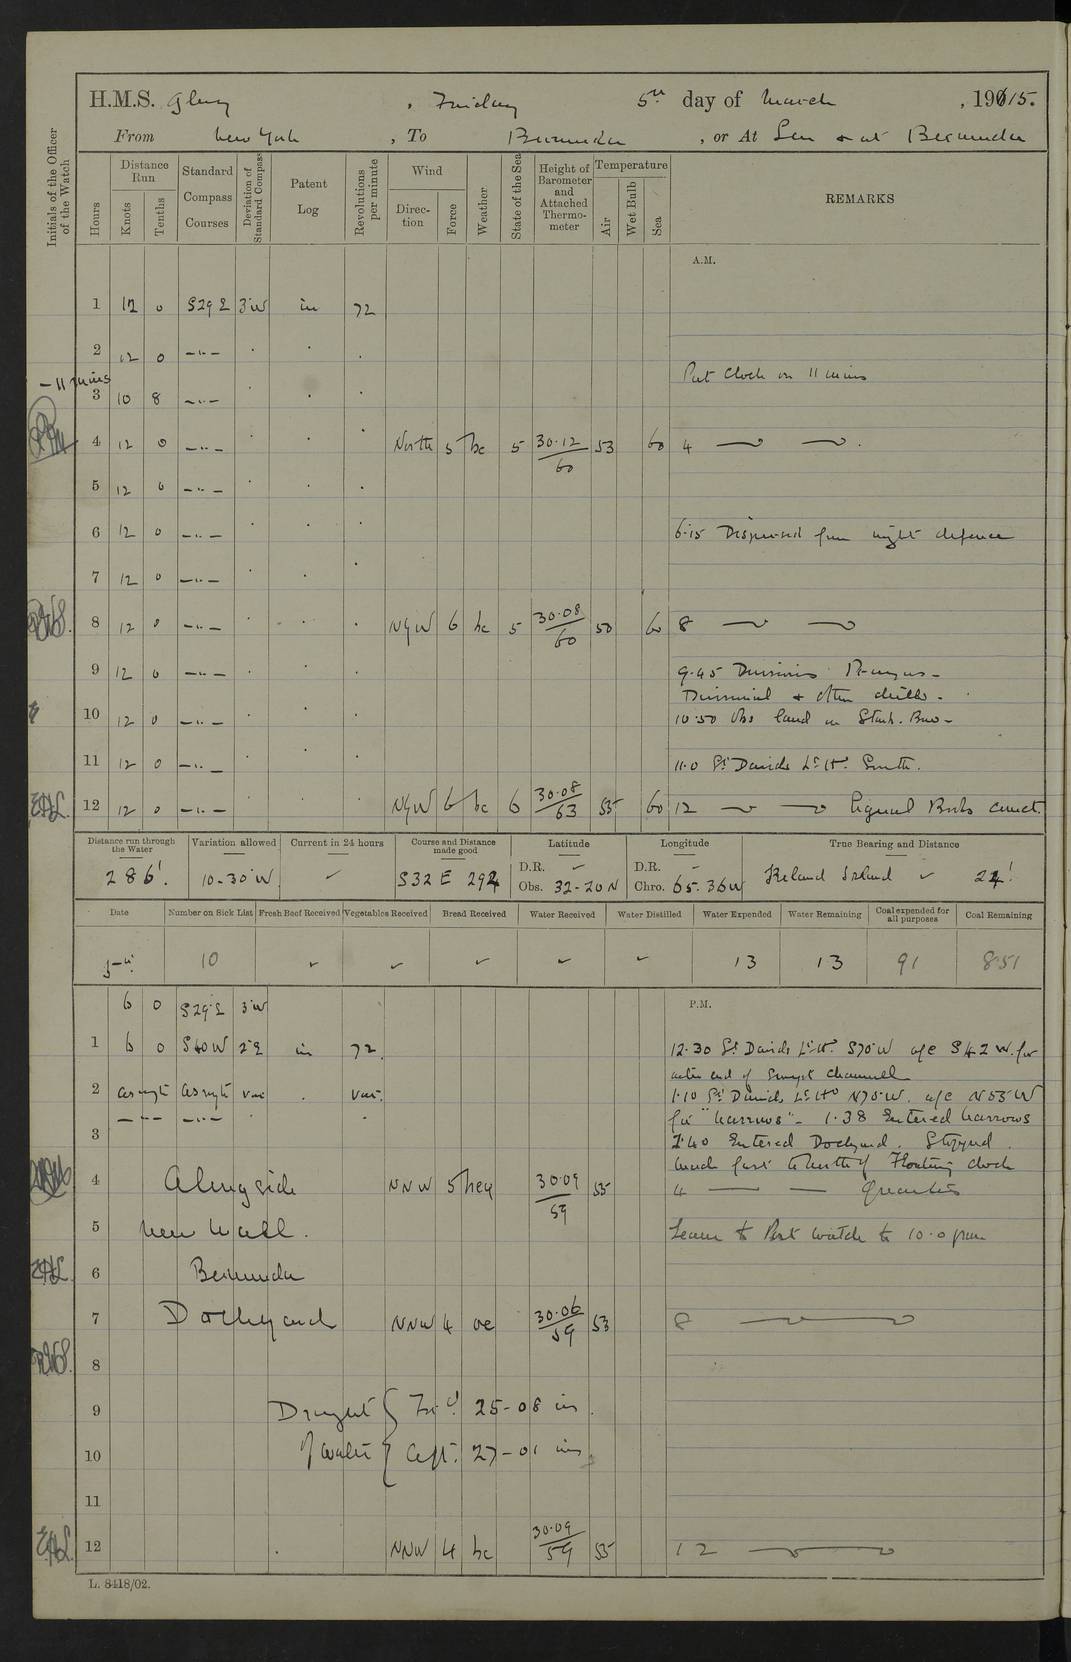 H.M.S. Glory , Friday 5th day of March , 1915.
From New York , To Bermuda , or At Sea & at Bermuda
Initials of the Officer of the Watch
Hours
Distance Run
Knots
Tenths
Standard Compass Courses
Deviation of Standard Compass
Patent Log
Revolutions per minute
Wind
Direction
Force
Weather
State of the Sea
Height of Barometer and Attached Thermometer
Temperature
Air
Wet Bulb
Sea
REMARKS
A.M.
1 12 0 S29E 3°W in 72
2 12 0 —"—
- 11 mins Put Clock on 11 mins
3 10 8 —"—
4 12 0 —"— North 5 bc 5 30.12/60 53 60 4
5 12 0 —"—
6 12 0 —"— 6.15 Dispersed from night defence
7 12 0 —"—
8 12 0 —"— NyW 6 bc 5 30.08/60 50 60 8
9 12 0 —"— 9.45 Divisions Prayers -
Divisional & other drills -
10 12 0 —"— 10.50 Obs land on Starb. Bow -
11 12 0 —"— 11.0 St Davids Lt Ho. South.
12 12 0 —"— NyW 6 bc 6 30.08/63 55 60 12 Signal Books correct.
Distance run through the Water 286'
Variation allowed 10-30'W
Current in 24 hours
Course and Distance made good S32E 294
Latitude D.R. Obs. 32-20N
Longitude D.R. Chro. 65.36W
True Bearing and Distance Ireland Island 24'
Date Number on Sick List Fresh Beef Received Vegetables Received Bread Received Water Received Water Distilled Water Expended Water Remaining Coal expended for all purposes Coal Remaining
5th 10 13 13 91 851
P.M.
6 0 S29E 3°W
1 6 0 S40W 2°E in 72 12.30 St Davids Lt Ho. S70W a/c S42W. for
outer end of swept channel
2 as reqt as reqt var var. 1.10 St Davids Lt Ho N70W. a/c N53W
—"— —"— for "Narrows" - 1.38 Entered Narrows
3 2.40 Entered Dockyard. Stopped.
made fast to North of Floating dock
4 Alongside NNW 5 30.09/59 55 4 Quarters
5 New Wall. Leave to Port watch to 10.0 pm
6 Bermuda
7 Dockyard NNW 4 oc 30.06/59 53 8
8
9 Draught { For'd 25-08 ins.
10 of water { Aft. 27-01 ins
11
12 NNW 4 bc 30.09/59 55 12
L. 8418/02.